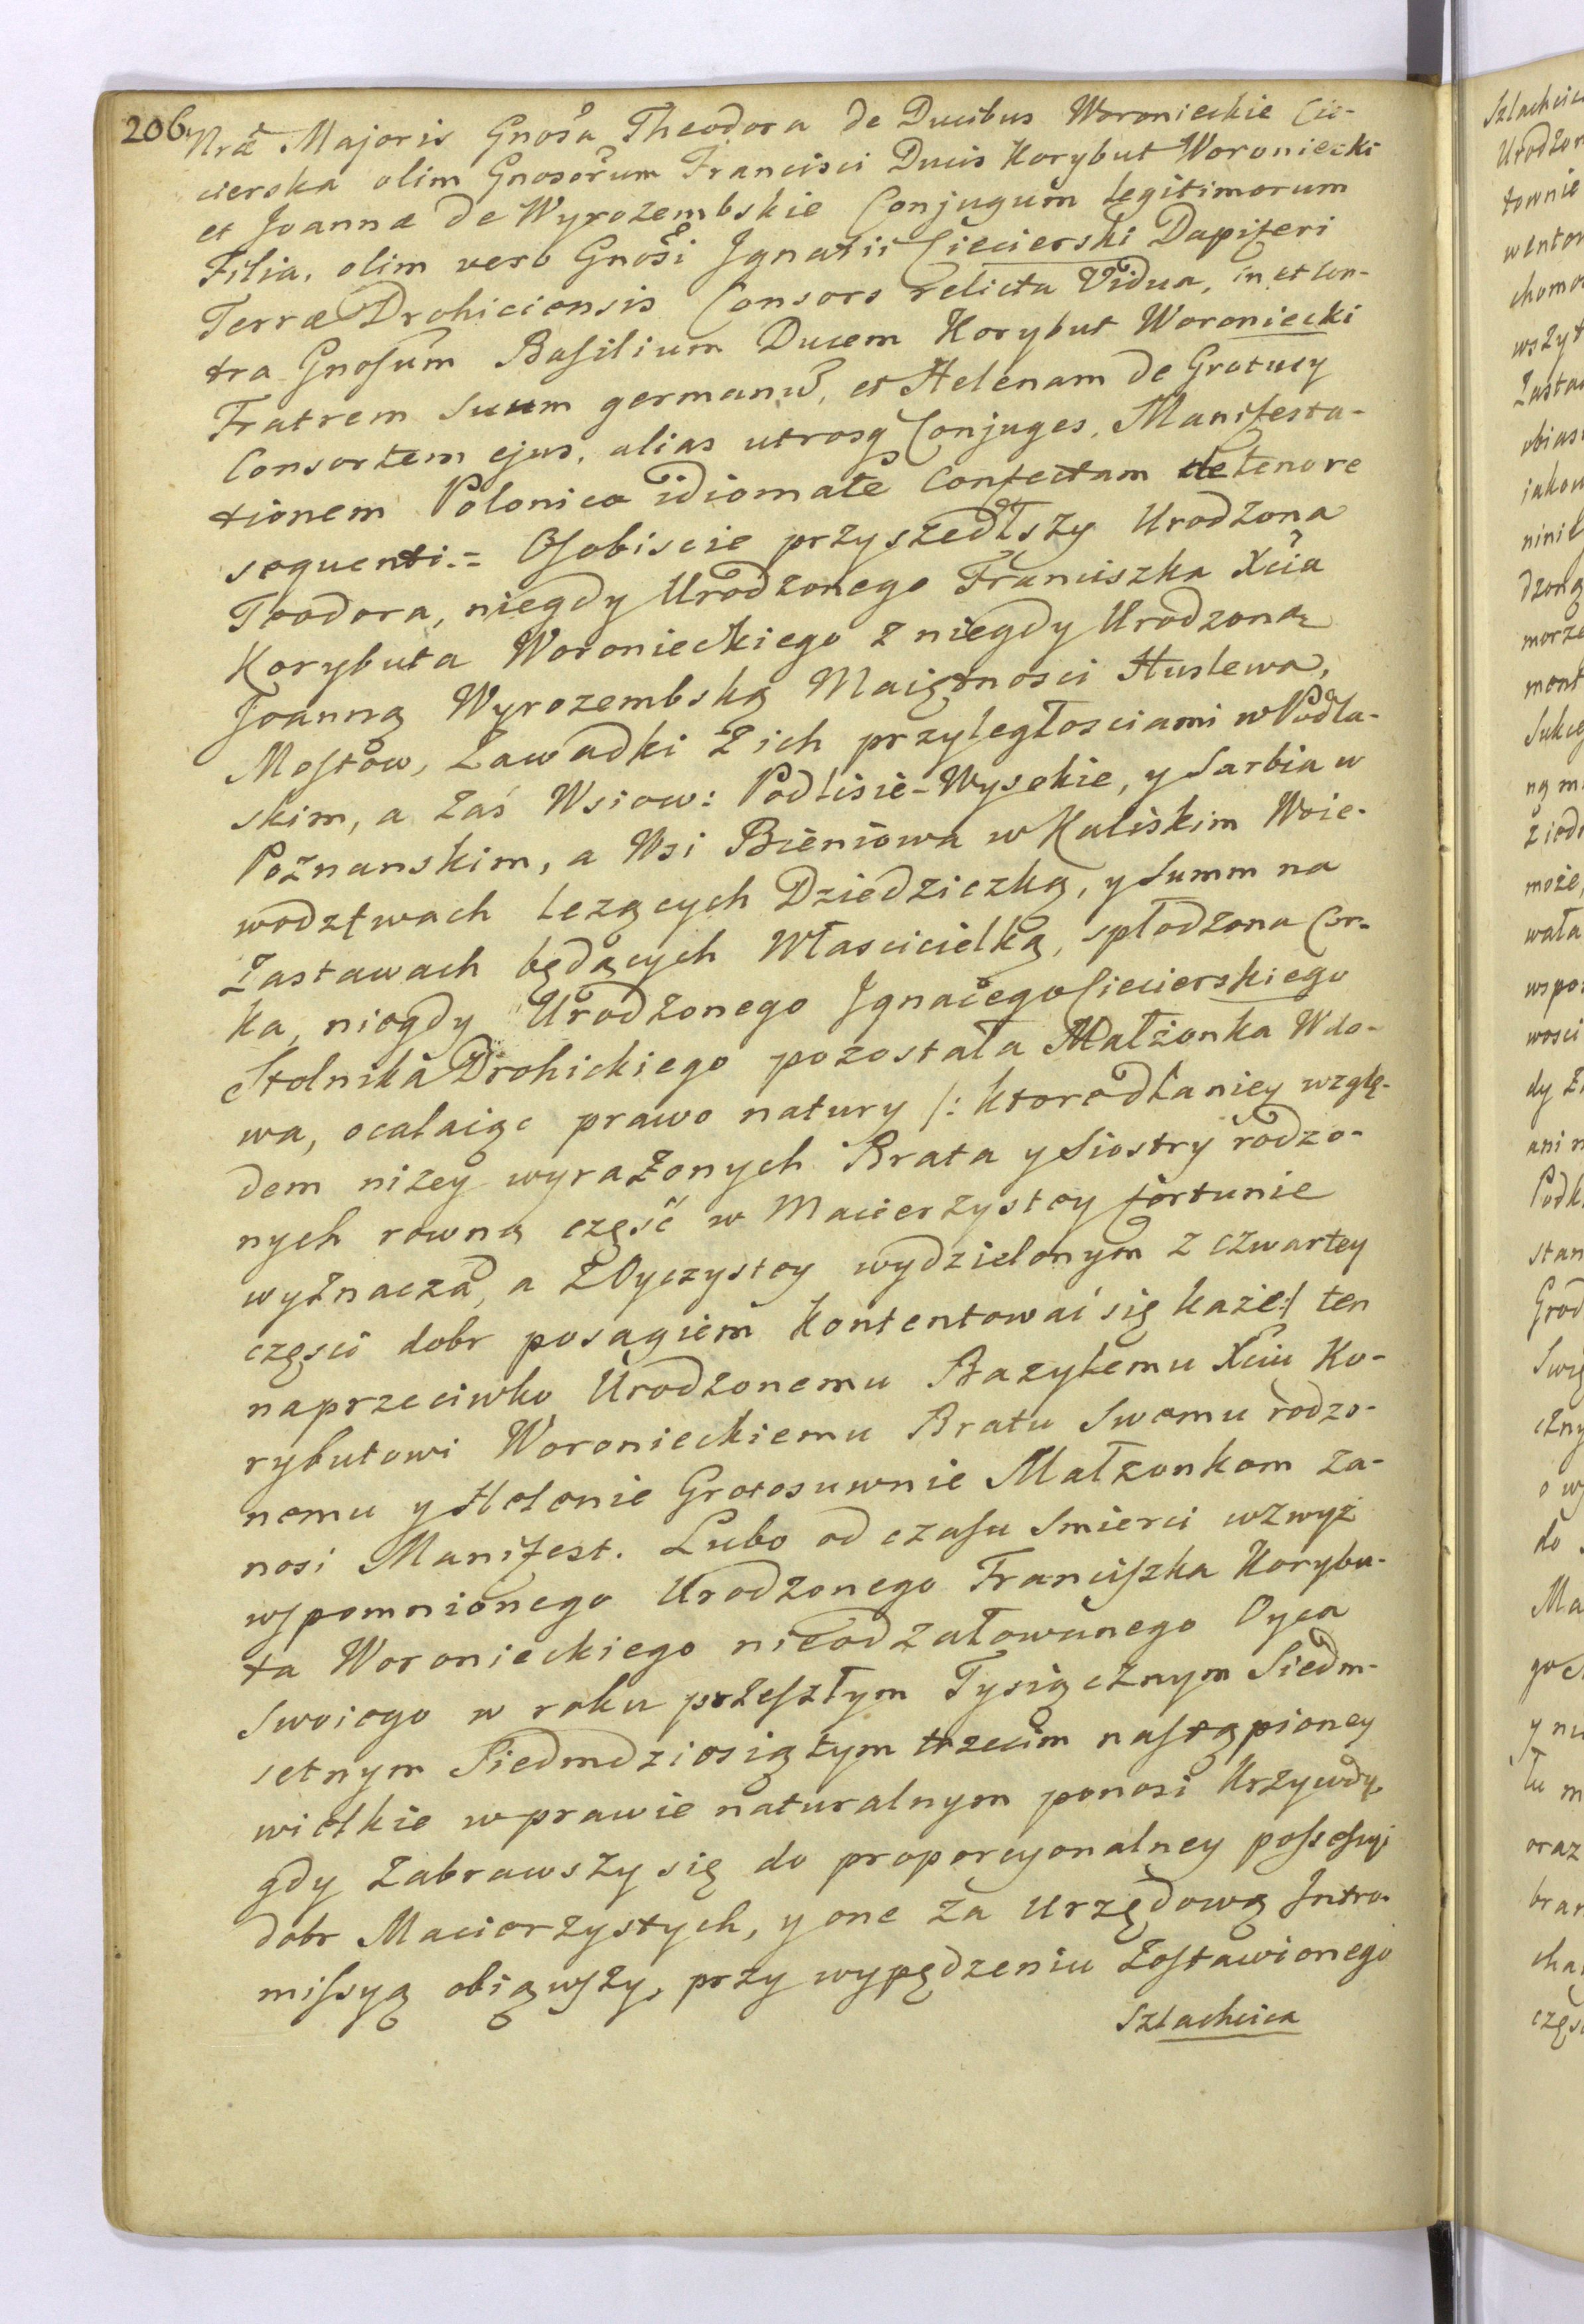 206.
Nrae Majoris Gnosa Theodora de Ducibus Woronieckie Cie-
cierska olim Gnosorum Francisci Ducis Korybut Woroniecki
et Joannæ de Wyrozembskie Conjugum legitimorum
Filia, olim vero Gnosi Jgnatii Ciecierski Dapiferi
Terræ Drohiciensis Consors relicta Vidua, in et con-
tra Gnosum Basilium Ducem Korybut Woroniecki
Fratrem Suum germanum, et Helenam de Grotusy
Consortem ejus, alias utrosq Conjuges, Manifesta-
tionem Polonico idiomate Confectam de tenore
sequenti.= Osobiscie przyszedłszy Urodzona
Teodora, niegdy Urodzonego Franciszka Xcia
Korybuta Woronieckiego z niegdy Urodzoną
Joanną Wyrozembską Maiętnosci Huslewa,
Mostow, Zawadki z ich przyległosciami w Podla-
skim, a zaś Wsiow: Podlisie-Wysokie, y Sarbia w
Poznanskim, a Wsi Bieniowa w Kaliskim Woie-
wodztwach lezących Dziedziczką, y Summ na
Zastawach będących Własccicielką, spłodzona Cor-
ka, niegdy Urodzonego Jgnacego Ciecierskiego
Stolnika Drohickiego pozostała Małżonka Wdo-
wa, ocalaiąc prawo natury /: ktore dla niey wzglę-
dem niżey wyrażonych Brata y Siostry rodzo-
nych rowną część w Macierzystey fortunie
wyznacza, a z Oyczystey wydzielonym z czwartey
części dobr posagiem kontentować się każe:/ ten
naprzeciwko Urodzonemu Bazylemu Xciu Ko-
rybutowi Woronieckiemu Bratu Swemu rodzo-
nemu y Helenie Grotosuwnie Małzonkom za-
nosi Manifest. Lubo od czasu Smierci wzwyż
wspomnionego Urodzonego Franciszka Korybu-
ta Woronieckiego nieodzałowanego Oyca
Swoiego w roku przeszłym Tysiącznym Siedm-
setnym Siedmdziesiątym trzecim nastąpioney
wielkie w prawie naturalnym ponosi Krzywdy,
gdy zabrawszy się do proporcyonalney possessyi
dobr Macierzystych, y one za Urzędową Jntro-
missyą obiąwszy, przy wypędzeniu zostawionego
Szlachcica